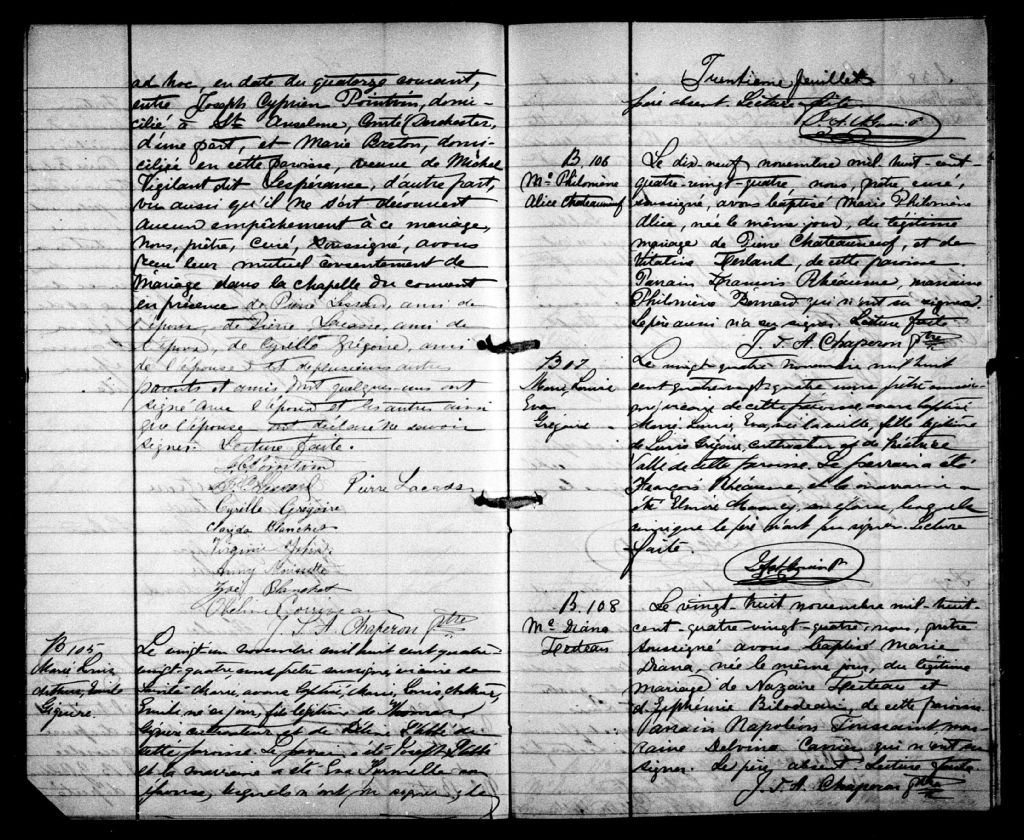 ad hoc, en date du quatorze courant,
entre Joseph Cyprien Pointvin, domi-
cilié à Ste Anselme, Comté Dorchester,
d'une part, et Marie Breton, domi-
ciliée en cette paroisse, veuve de Michel
Vigilant dit Lespérance, d'autre part,
vu aussi qu'il ne s'est découvert
aucun empêchement à ce mariage,
nous, prêtre, curé, soussigné, avons
reçu leur mutuel consentement de
mariage dans la chapelle du couvent
en présence de Pierre ami de
l'époux, de Pierre Lacasse, ami de
l'époux, de Cyrille Grégoire, ami
de l'épouse et de plusieurs autres
parents et amis dont quelques uns ont
signé avec l'époux et les autres ainsi
que l'épouse ont déclaré ne savoir
signer. Lecture faite.
Pierre Lacasse
Cyrille Grégoire
Clarida Blanchet
Virginie
Anny
Zoé Blanchet
J. T. A. Chaperon ptre
B 105
Marie Louis
Arthur, Emile
Giguère.
Le vingt un novembre mil huit cent quatre
vingt quatre, nous prêtre soussigné, vicaire de
Sainte Marie, avons baptisé, Marie, Louis, Arthur,
Emile, né ce jour, fils légitime de Thomas
Giguère cultivateur et de
cette paroisse. Le parrain a été Joseph
et la marraine a été Eva Turmelle son
épouse, lesquels n'ont su signer, le
Trentième feuillet
père absent Lecture faite
B. 106
Me Philomène
Alice Chateauneuf
Le dix neuf novembre mil huit-cent-
quatre-vingt-quatre, nous, prêtre curé,
soussigné, avons baptisé Marie Philomène
Alice, née le même jour, du légitime
mariage de Pierre Chateauneuf, et de
Vitaline Ferland, de cette paroisse.
Parrain François Rhéaume, marraine
Philomène Bernard qui n'ont su signer.
Le père aussi n'a su signer. Lecture faite
J. T. A. Chaperon Ptre
B 107
Marie, Louise
Eva
Grégoire
Le vingt quatre novembre mil huit
cent quatre vingt quatre nous prêtre
de cette paroisse, avons baptisé
Marie, Louise, Eva, née la veille, fille légitime
de Louis Grégoire, cultivateur et de
Vallé de cette paroisse. Le parrain a été
François Rhéaume, et la marraine a
été Elmire son épouse, lesquels
ainsi que le père n'ont pu signer. Lecture
faite.
B. 108
Me Diana
Fecteau
Le vingt-huit novembre mil-huit-
cent-quatre-vingt-quatre, nous, prêtre
soussigné avons baptisé Marie
Diana, née le même jour, du légitime
mariage de Nazaire Fecteau et
d'Euphémie Bilodeau, de cette paroisse.
Parrain Napoléon Toussaint, mar-
raine Delvina Carrier qui n'ont su
signer. Le père absent Lecture faite
J. T. A. Chaperon Ptre